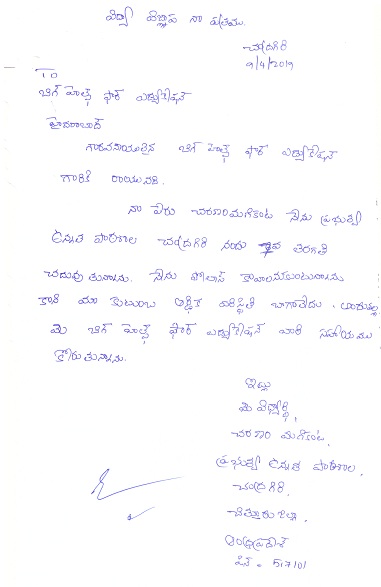 విద్యా విజ్ఞాప నా పత్రము.
చంద్రగిరి
9/4/2019
To
బిగ్ హెల్ప్ ఫార్ ఎడ్యుకేషన్
హైదరాబాద్
గౌరవనీయులైన బిగ్ హెల్ప్ ఫార్ ఎడ్యుకేషన్
గారికి రాయునది.
నా పేరు చరణం మణికంట నేను ప్రభుత్వ
ఉన్నత పాఠశాల చంద్రగిరి నందు తరగతి
చదువు తున్నాను. నేను పోలీస్ కావాలనుకుంటున్నాను
కాని మా కుటుంబ ఆర్థిక పరిస్థితి బాగాలేదు. అందువల్ల
మీ బిగ్ హెల్ప్ ఫార్ ఎడ్యుకేషన్ వారి సహాయము
కోరు తున్నాను.
ఇట్లు
మీ విద్యార్థి,
చరణం మణికంట,
ప్రభుత్వ ఉన్నత పాఠశాల,
చంద్రగిరి,
చిత్తూరు జిల్లా,
ఆంధ్రప్రదేశ్
పిన్ - 517101